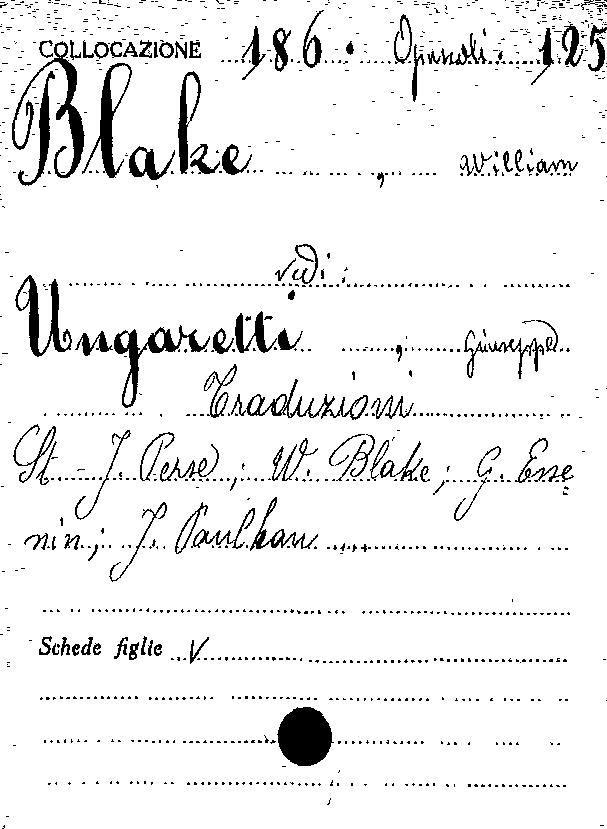 COLLOCAZIONE 186. Opuscoli. 125
Blake, William
vedi:
Ungaretti, Giuseppe
Traduzioni
St-J. Perse; W. Blake; G. Esse=
nin; J. Paulhan ....
Schede figlie V